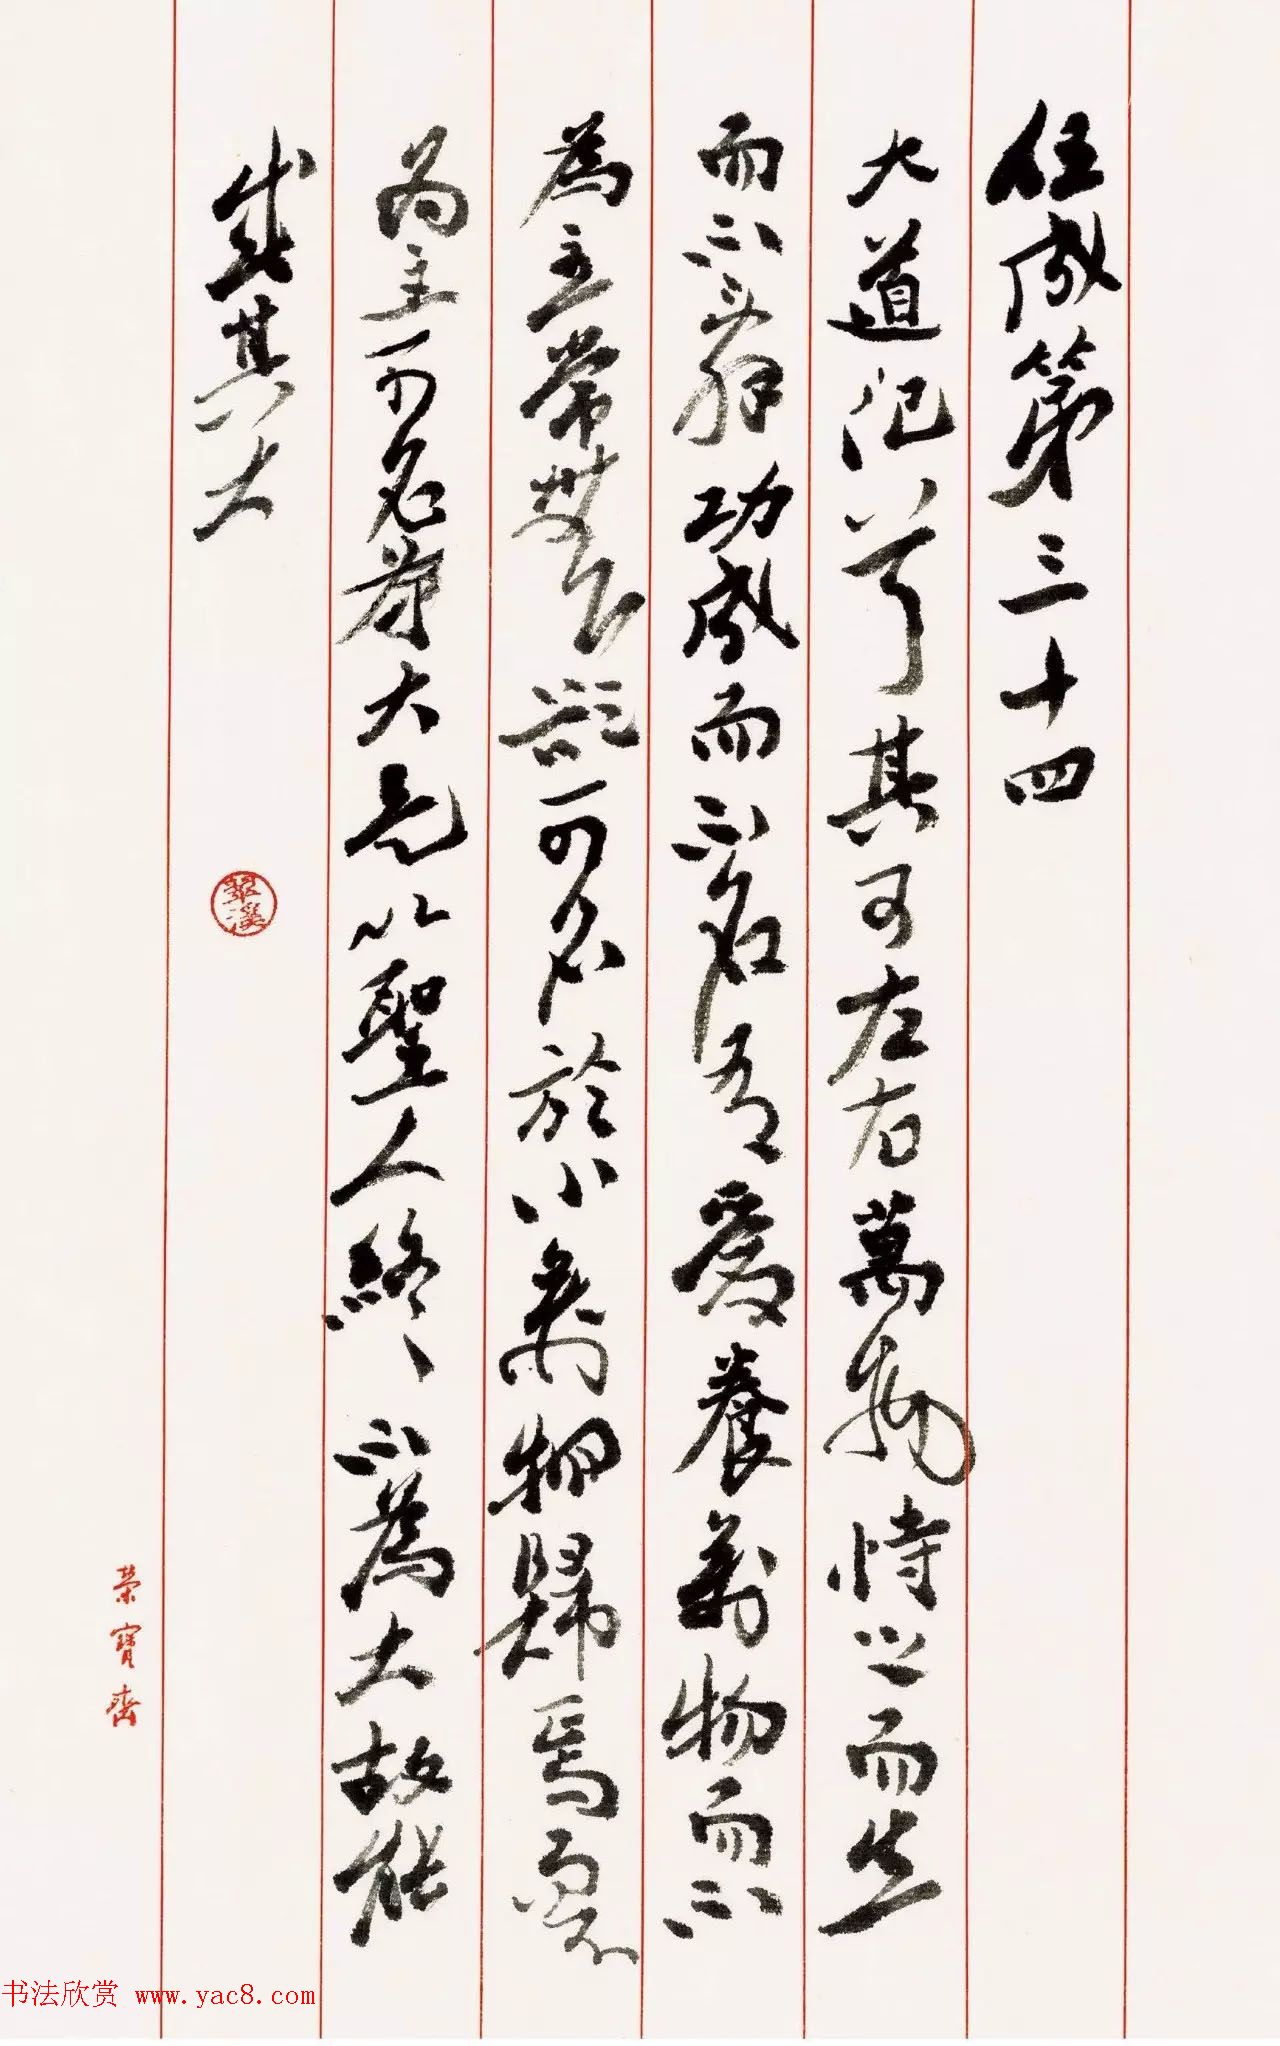 任成第三十四
大道汜兮其可左右萬物恃之而生
而不辭功成而不名有愛養萬物而不
為主常無欲可名於小萬物歸焉而不
為主可名為大是以聖人終不為大故能
成其大
翠溪
榮寶齋
书法欣赏 www.yac8.com